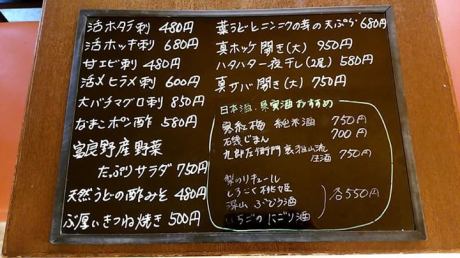 活ホタテ刺 480円
活ホッキ刺 680円
甘エビ刺 480円
活〆ヒラメ刺 600円
大バチマグロ刺 850円
なまこポン酢 580円
富良野産野菜
たっぷりサラダ 750円
天然うどの酢みそ 480円
ぶ厚いきつね焼き 500円
葉わさびとニンニクの芽の天ぷら 680円
真ホッケ開き(大) 950円
ハタハタ一夜干し(2尾) 580円
真サバ開き(大) 750円
日本酒、果実酒おすすめ
寒紅梅 純米酒 750円
石鎚じまん 700円
九郎左衛門 裏雅山流 生酒 750円
梨のリキュール
とうごく桃姫
深山 ぶどう酒
いちごのにごり酒
各550円